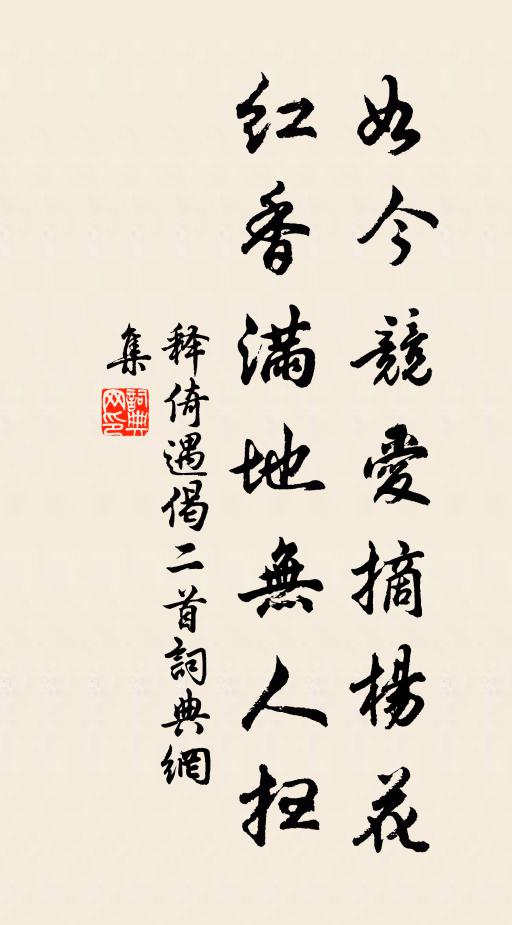 如今競愛摘楊花
紅香滿地無人扫
释倚遇偈二首詞典網
集
詞典
网印